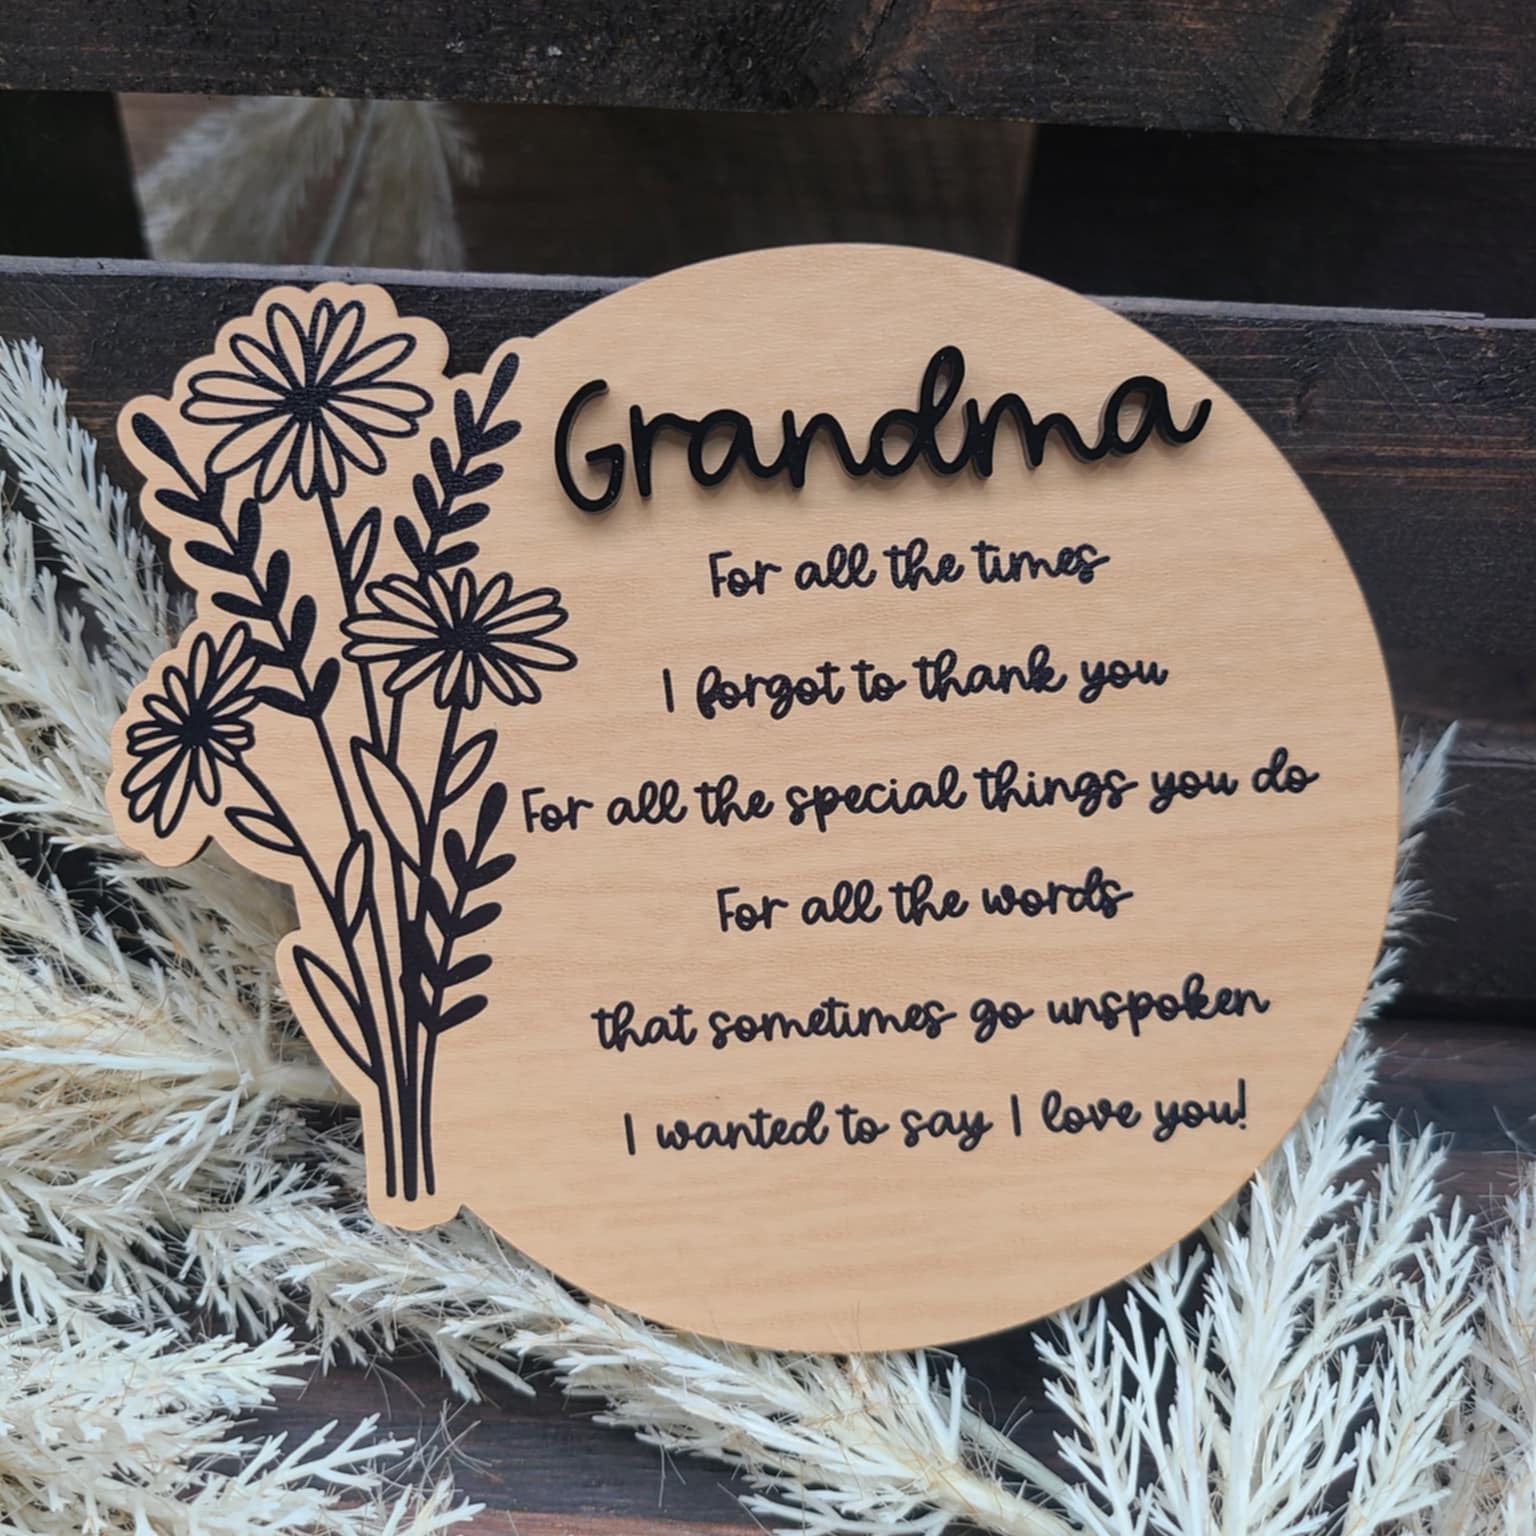 Grandma
For all the times
I forgot to thank you
For all the special things you do
For all the words
that sometimes go unspoken
I wanted to say I love you!